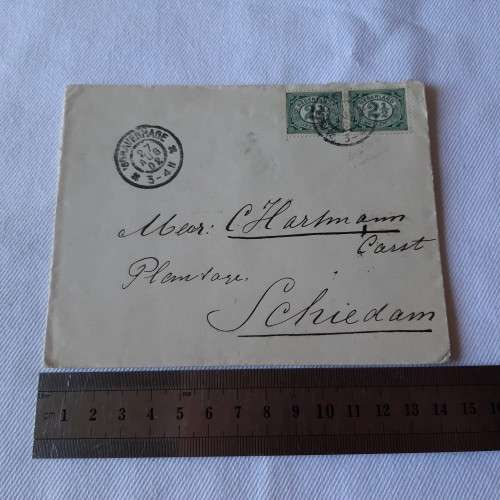 NEDERLAND NEDERLAND
2½ 2½
'SGRAVENHAGE
27
AUG
02
3-4N
Mevr: C Hartmann
Plantage.
Schiedam
cm 1 2 3 4 5 6 7 8 9 10 11 12 13 14 15